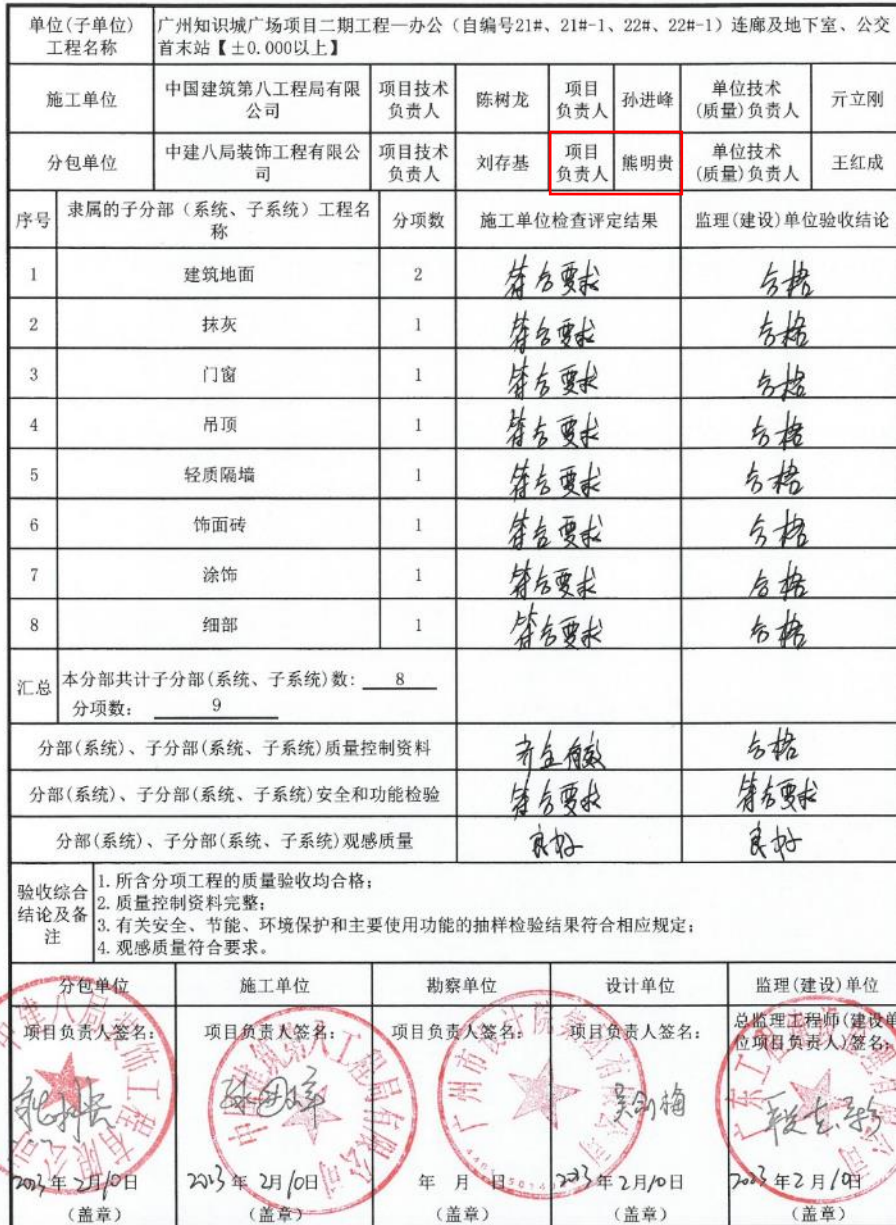 单位(子单位)
工程名称
广州知识城广场项目二期工程—办公（自编号21#、21#-1、22#、22#-1）连廊及地下室、公交
首末站【±0.000以上】
施工单位
中国建筑第八工程局有限
公司
项目技术
负责人
陈树龙
项目
负责人
孙进峰
单位技术
(质量)负责人
亓立刚
分包单位
中建八局装饰工程有限公
司
项目技术
负责人
刘存基
项目
负责人
熊明贵
单位技术
(质量)负责人
王红成
序号
隶属的子分部（系统、子系统）工程名
称
分项数
施工单位检查评定结果
监理(建设)单位验收结论
1 建筑地面 2 符合要求 合格
2 抹灰 1 符合要求 合格
3 门窗 1 符合要求 合格
4 吊顶 1 符合要求 合格
5 轻质隔墙 1 符合要求 合格
6 饰面砖 1 符合要求 合格
7 涂饰 1 符合要求 合格
8 细部 1 符合要求 合格
汇总
本分部共计子分部(系统、子系统)数: 8
分项数: 9
分部(系统)、子分部(系统、子系统)质量控制资料 齐全有效 合格
分部(系统)、子分部(系统、子系统)安全和功能检验 符合要求 符合要求
分部(系统)、子分部(系统、子系统)观感质量 良好 良好
验收综合
结论及备
注
1.所含分项工程的质量验收均合格;
2.质量控制资料完整;
3.有关安全、节能、环境保护和主要使用功能的抽样检验结果符合相应规定;
4.观感质量符合要求。
分包单位 施工单位 勘察单位 设计单位 监理(建设)单位
项目负责人签名: 项目负责人签名: 项目负责人签名: 项目负责人签名: 总监理工程师(建设单
位项目负责人)签名:
吴剑梅
2023年2月10日 2023年2月10日 年 月 日 2023年2月10日 2023年2月10日
(盖章) (盖章) (盖章) (盖章) (盖章)